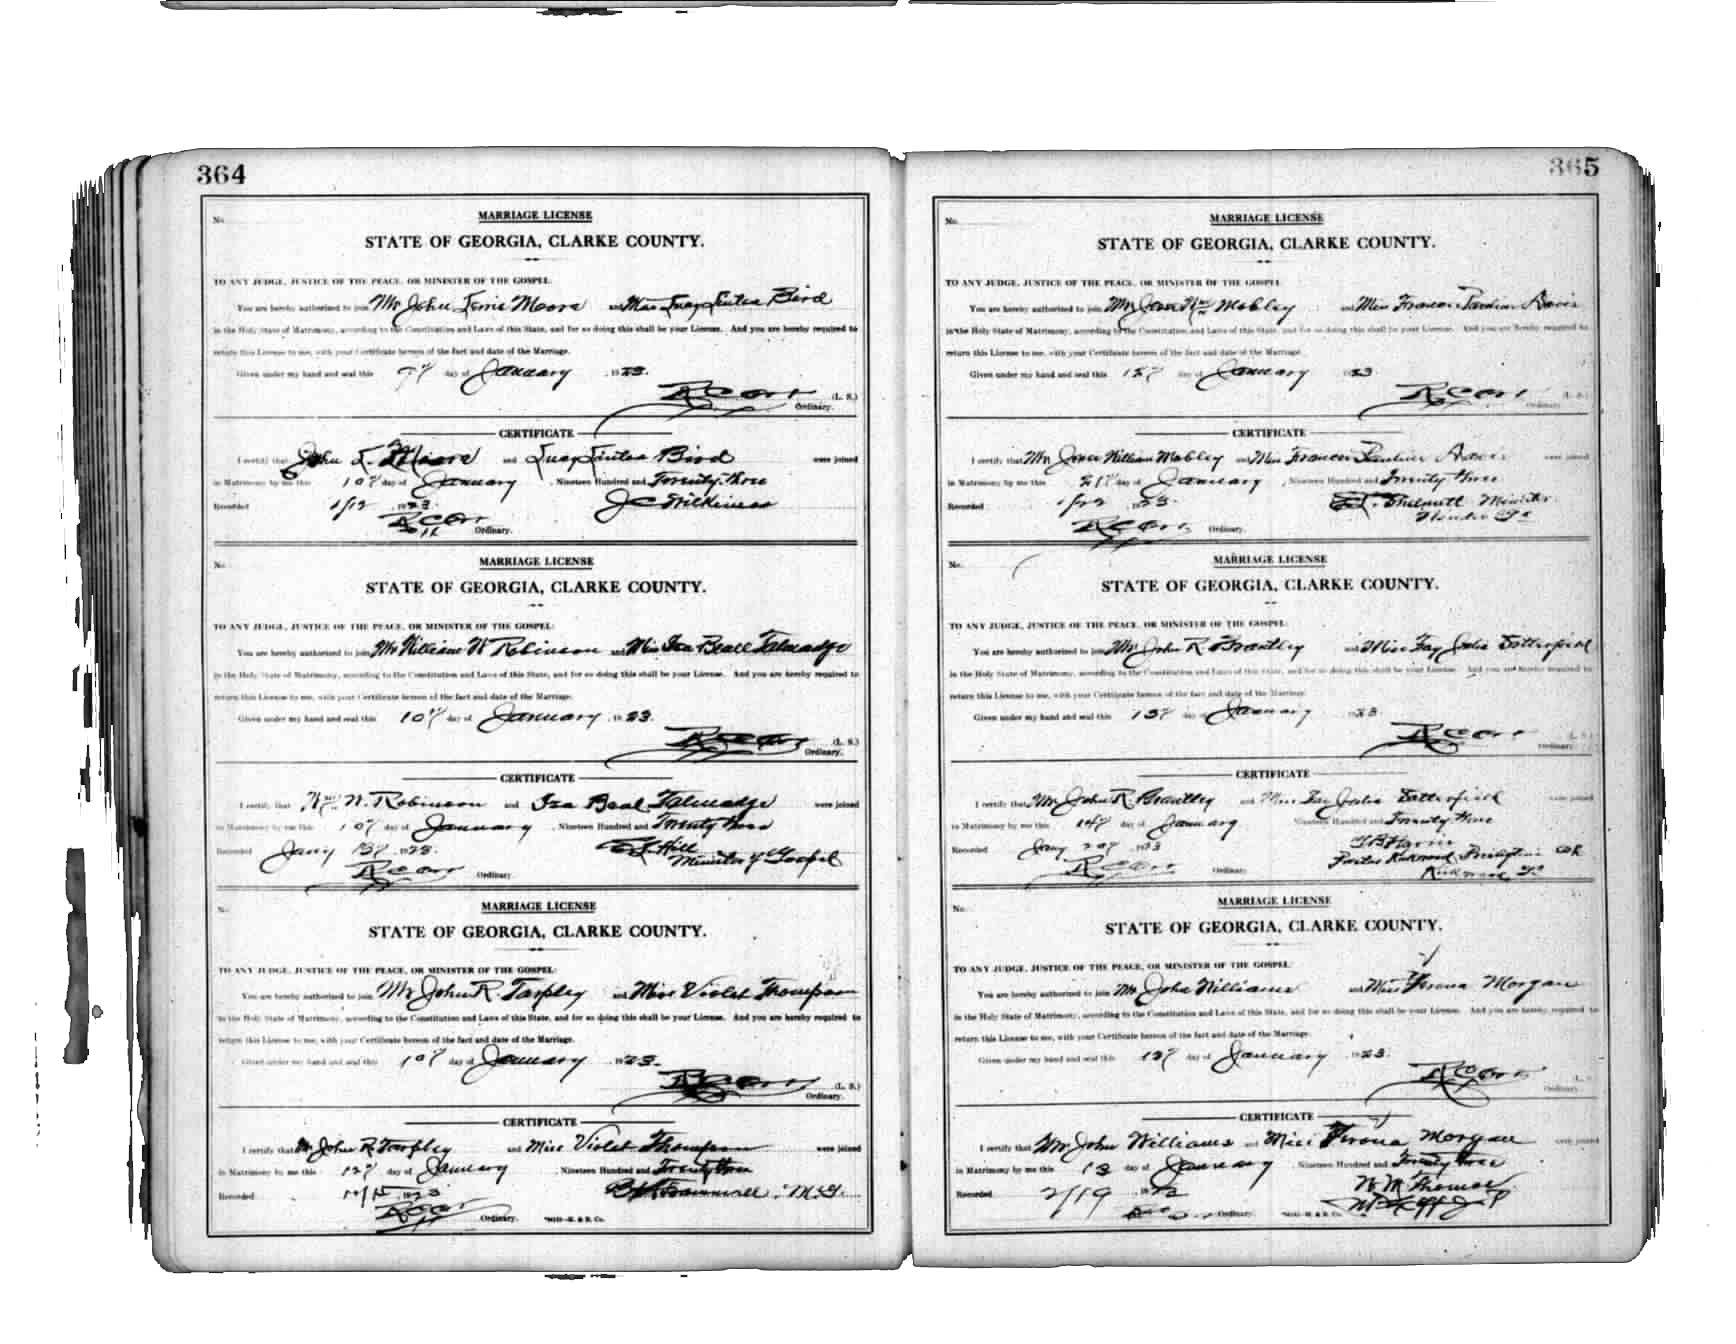 364
No.
MARRIAGE LICENSE
STATE OF GEORGIA, CLARKE COUNTY.
TO ANY JUDGE, JUSTICE OF THE PEACE, OR MINISTER OF THE GOSPEL
You are hereby authorized to join Mr John Moore and Miss Lucy Bird
in the Holy State of Matrimony, according to the Constitution and Laws of this State, and for so doing this shall be your License. And you are hereby required to
return this License to me, with your Certificate hereon of the fact and date of the Marriage.
Given under my hand and seal this day of January 1923.
R C Orr (L. S.)
Ordinary.
CERTIFICATE
I certify that John L. Moore and Lucy Bird were joined
in Matrimony by me this 10th day of January, Nineteen Hundred and Twenty three
Recorded 1/12 1923 J C Wilkinson
R C Orr
Ordinary.
No.
MARRIAGE LICENSE
STATE OF GEORGIA, CLARKE COUNTY.
TO ANY JUDGE, JUSTICE OF THE PEACE, OR MINISTER OF THE GOSPEL:
You are hereby authorized to join Mr William W Robinson and Miss Iza Beall Talmadge
in the Holy State of Matrimony, according to the Constitution and Laws of this State, and for so doing this shall be your License. And you are hereby required to
return this License to me, with your Certificate hereon of the fact and date of the Marriage.
Given under my hand and seal this 10th day of January 1923.
R C Orr (L. S.)
Ordinary.
CERTIFICATE
I certify that Wm W. Robinson and Iza Beal Talmadge were joined
in Matrimony by me this 10th day of January, Nineteen Hundred and Twenty three
Recorded Jany 1923. Hill
Minister of Gospel
R C Orr Ordinary.
No.
MARRIAGE LICENSE
STATE OF GEORGIA, CLARKE COUNTY.
TO ANY JUDGE, JUSTICE OF THE PEACE, OR MINISTER OF THE GOSPEL:
You are hereby authorized to join Mr John R. Tarpley and Miss Violet Thompson
in the Holy State of Matrimony, according to the Constitution and Laws of this State, and for so doing this shall be your License. And you are hereby required to
return this License to me, with your Certificate hereon of the fact and date of the Marriage.
Given under my hand and seal this 10th day of January 1923.
R C Orr (L. S.)
Ordinary.
CERTIFICATE
I certify that Mr John R. Tarpley and Miss Violet Thompson were joined
in Matrimony by me this 12th day of January, Nineteen Hundred and Twenty three
Recorded 1923 M.G.
R C Orr Ordinary.
365
No.
MARRIAGE LICENSE
STATE OF GEORGIA, CLARKE COUNTY.
TO ANY JUDGE, JUSTICE OF THE PEACE, OR MINISTER OF THE GOSPEL
You are hereby authorized to join Mr Wm Mobley and Miss Frances
in the Holy State of Matrimony, according to the Constitution and Laws of this State, and for so doing this shall be your License. And you are hereby required to
return this License to me, with your Certificate hereon of the fact and date of the Marriage.
Given under my hand and seal this day of January 1923
R C Orr (L. S.)
Ordinary.
CERTIFICATE
I certify that Mr William Mobley and Miss Frances were joined
in Matrimony by me this 21st day of January, Nineteen Hundred and Twenty three
Recorded 1/22 1923. Minister
R C Orr Ordinary.
No.
MARRIAGE LICENSE
STATE OF GEORGIA, CLARKE COUNTY.
TO ANY JUDGE, JUSTICE OF THE PEACE, OR MINISTER OF THE GOSPEL:
You are hereby authorized to join Mr John R Brantley and Miss Fay Satterfield
in the Holy State of Matrimony, according to the Constitution and Laws of this State, and for so doing this shall be your License. And you are hereby required to
return this License to me, with your Certificate hereon of the fact and date of the Marriage.
Given under my hand and seal this 13th day of January 1923.
R C Orr (L. S.)
Ordinary.
CERTIFICATE
I certify that Mr John R. Brantley and Miss Fay Satterfield were joined
in Matrimony by me this 14th day of January Nineteen Hundred and Twenty three
Recorded Jany 1923
Kirkwood
R C Orr Ordinary.
Kirkwood Ga
No.
MARRIAGE LICENSE
STATE OF GEORGIA, CLARKE COUNTY.
TO ANY JUDGE, JUSTICE OF THE PEACE, OR MINISTER OF THE GOSPEL:
You are hereby authorized to join Mr John Williams and Miss Morgan
in the Holy State of Matrimony, according to the Constitution and Laws of this State, and for so doing this shall be your License. And you are hereby required to
return this License to me, with your Certificate hereon of the fact and date of the Marriage.
Given under my hand and seal this 13th day of January 1923.
R C Orr (L. S.)
Ordinary.
CERTIFICATE
I certify that Mr John Williams and Miss Morgan were joined
in Matrimony by me this 13 day of January, Nineteen Hundred and Twenty three
Recorded 2/19 W M Thomas
Ordinary. J P